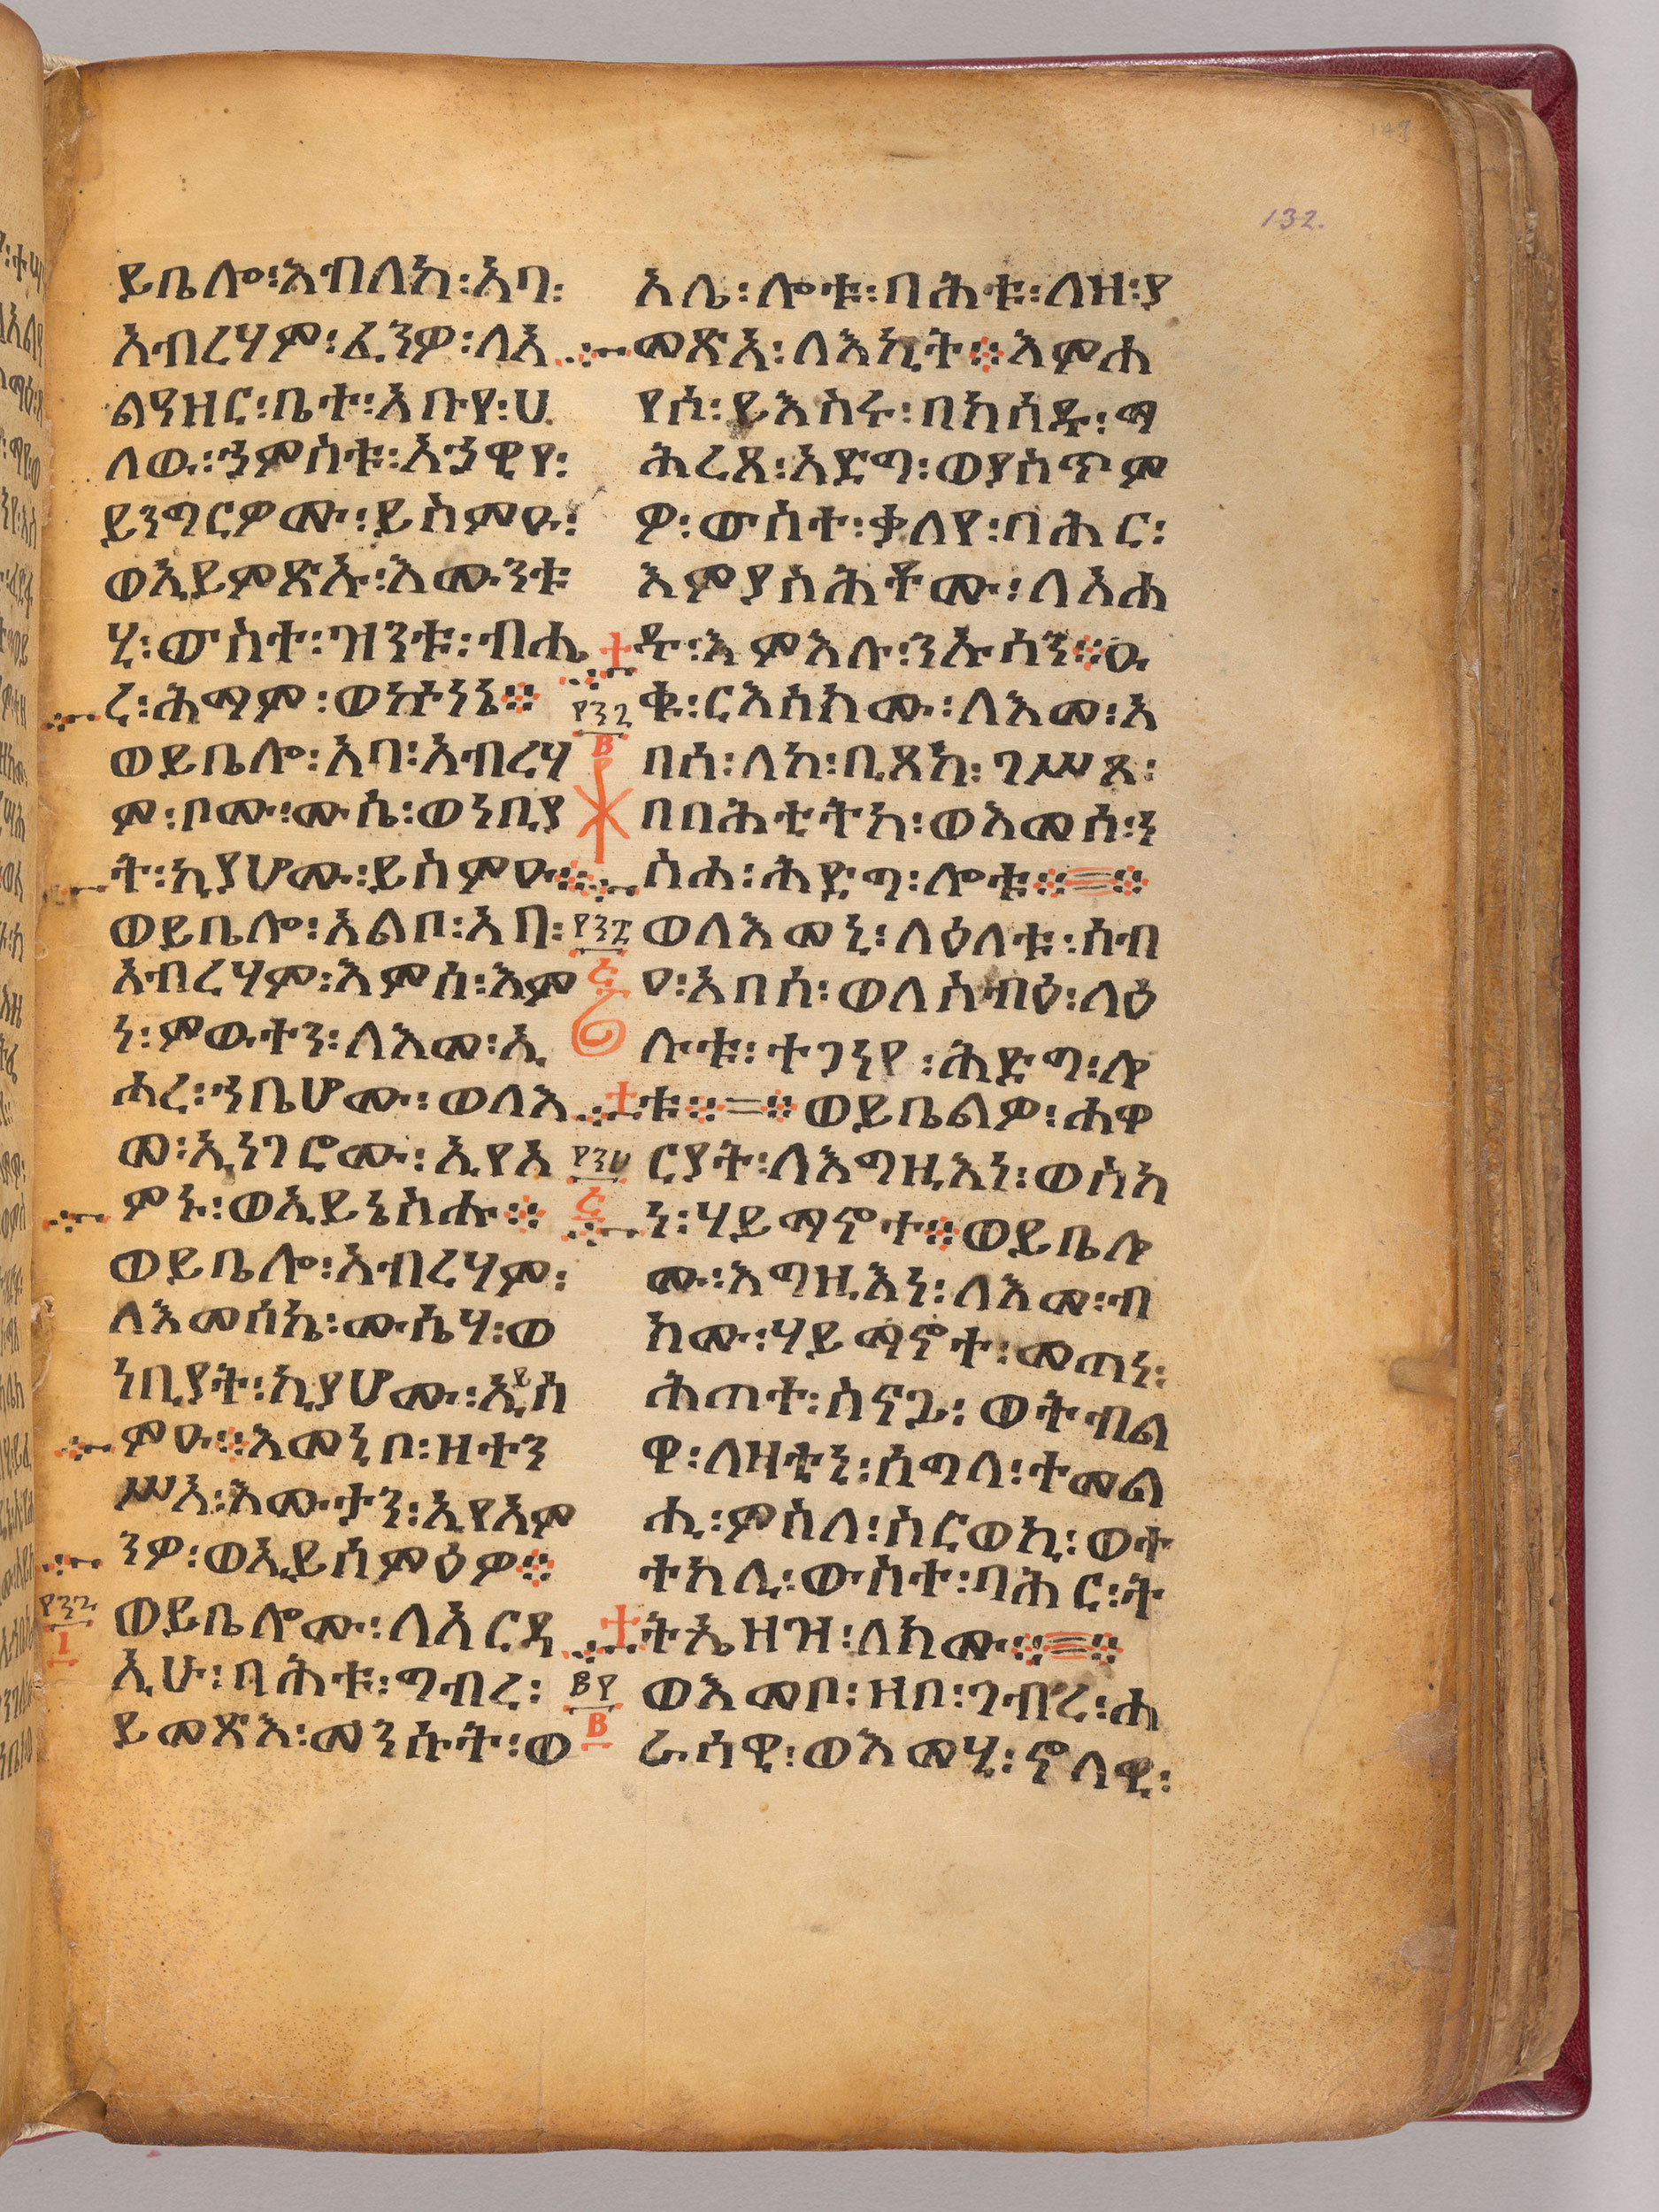 ይቤሎ፡እብለከ፡አባ፡
አብረሃም፡ፈንዎ፡ለአ
ልዓዘር፡ቤተ፡አቡየ፡ሀ
ለዉ፡ኀምስቱ፡አኃዊየ፡
ይንግርዎሙ፡ይስምዑ፡
ወኢይምጽኡ፡እሙንቱ
ሂ፡ውስተ፡ዝንቱ፡ብሔ
ረ፡ሕማም፡ወኵነኔ።
ወይቤሎ፡አባ፡አብረሃ
ም፡ቦሙ፡ሙሴ፡ወነቢያ
ት፡ኪያሆሙ፡ይስምዑ።
ወይቤሎ፡አልቦ፡አባ፡
አብረሃም፡እምሰ፡እም
ነ፡ምዉተን፡ለእመ፡ኢ
ሖረ፡ኀቤሆሙ፡ወለእ
መ፡ኢነገሮሙ፡ኢየአ
ምኑ፡ወኢይኔስሑ።
ወይቤሎ፡አብረሃም፡
ለእመሰኬ፡ሙሴሃ፡ወ
ነቢያት፡ኪያሆሙ፡ኢይስ
ምዑ።እመኒቦ፡ዘተን
ሥአ፡እሙታን፡ኢየአም
ንዎ፡ወኢይሰምዕዎ።
ወይቤሎሙ፡ለአርዳ
ኢሁ፡ባሕቱ፡ግብረ፡
ይመጽእ፡መንሱት፡ወ
አሌ፡ሎቱ፡ባሕቱ፡ለዘ፡ያ
መጽአ፡ለእኪት።እምሐ
የሶ፡ይእስሩ፡በክሳዱ፡ማ
ሕረጸ፡አድግ፡ወያስጥም
ዎ፡ውስተ፡ቃለየ፡ባሕር፡
እምያስሕቶሙ፡ለአሐ
ዱ፡እምእሉ፡ንኡሳን።ዑ
ቁ፡ርእሰክሙ፡ለእመ፡አ
በሰ፡ለከ፡ቢጽከ፡ገሥጾ፡
በባሕቲትከ፡ወእመሰ፡ነ
ስሐ፡ሕድግ፡ሎቱ።=።
ወለእመኒ፡ለዕለቱ፡ስብ
ዐ፡አበሰ፡ወለስብዕ፡ለዕ
ሉቱ፡ተጋነየ፡ሕድግ፡ሎ
ቱ።=።ወይቤልዎ፡ሐዋ
ርያት፡ለእግዚእነ፡ወስከ
ነ፡ሃይማኖተ።ወይቤሎ
ሙ፡እግዚእነ፡ለእመ፡ብ
ክሙ፡ሃይማኖተ፡መጠነ፡
ሕጠተ፡ስናፔ፡ወትብል
ዋ፡ለዛቲኒ፡ሰግላ፡ተመል
ሒ፡ምስለ፡ስርወኪ፡ወተ
ተከሊ፡ውስተ፡ባሕር፡ት
ትኤዘዝ፡ለክሙ።=።
ወእመቦ፡ዘቦ፡ገብረ፡ሐ
ራሳዊ፡ወእመሂ፡ኖላዊ፡
132.